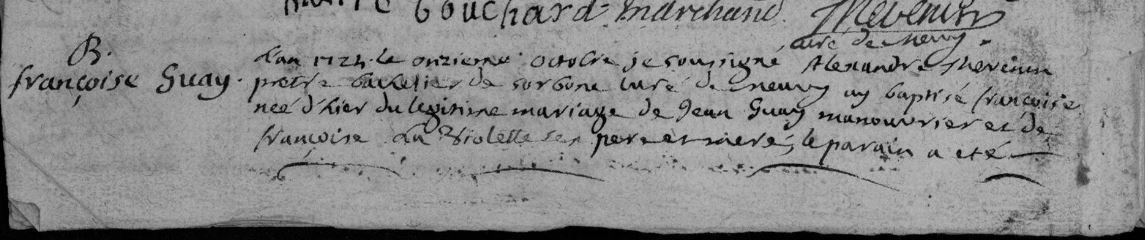 Bouchard marchand Thevenin
curé de neuvy.
B.
françoise Guay.
L'an 1724 le onzieme octobre je soussigné Alexandre thevenin
prêtre bachelier de sorbone curé de neuvy ay baptisé françoise
née d'hier du legitime mariage de Jean Guay manouvrier et de
françoise La Violette ses pere et mere; le parain a eté